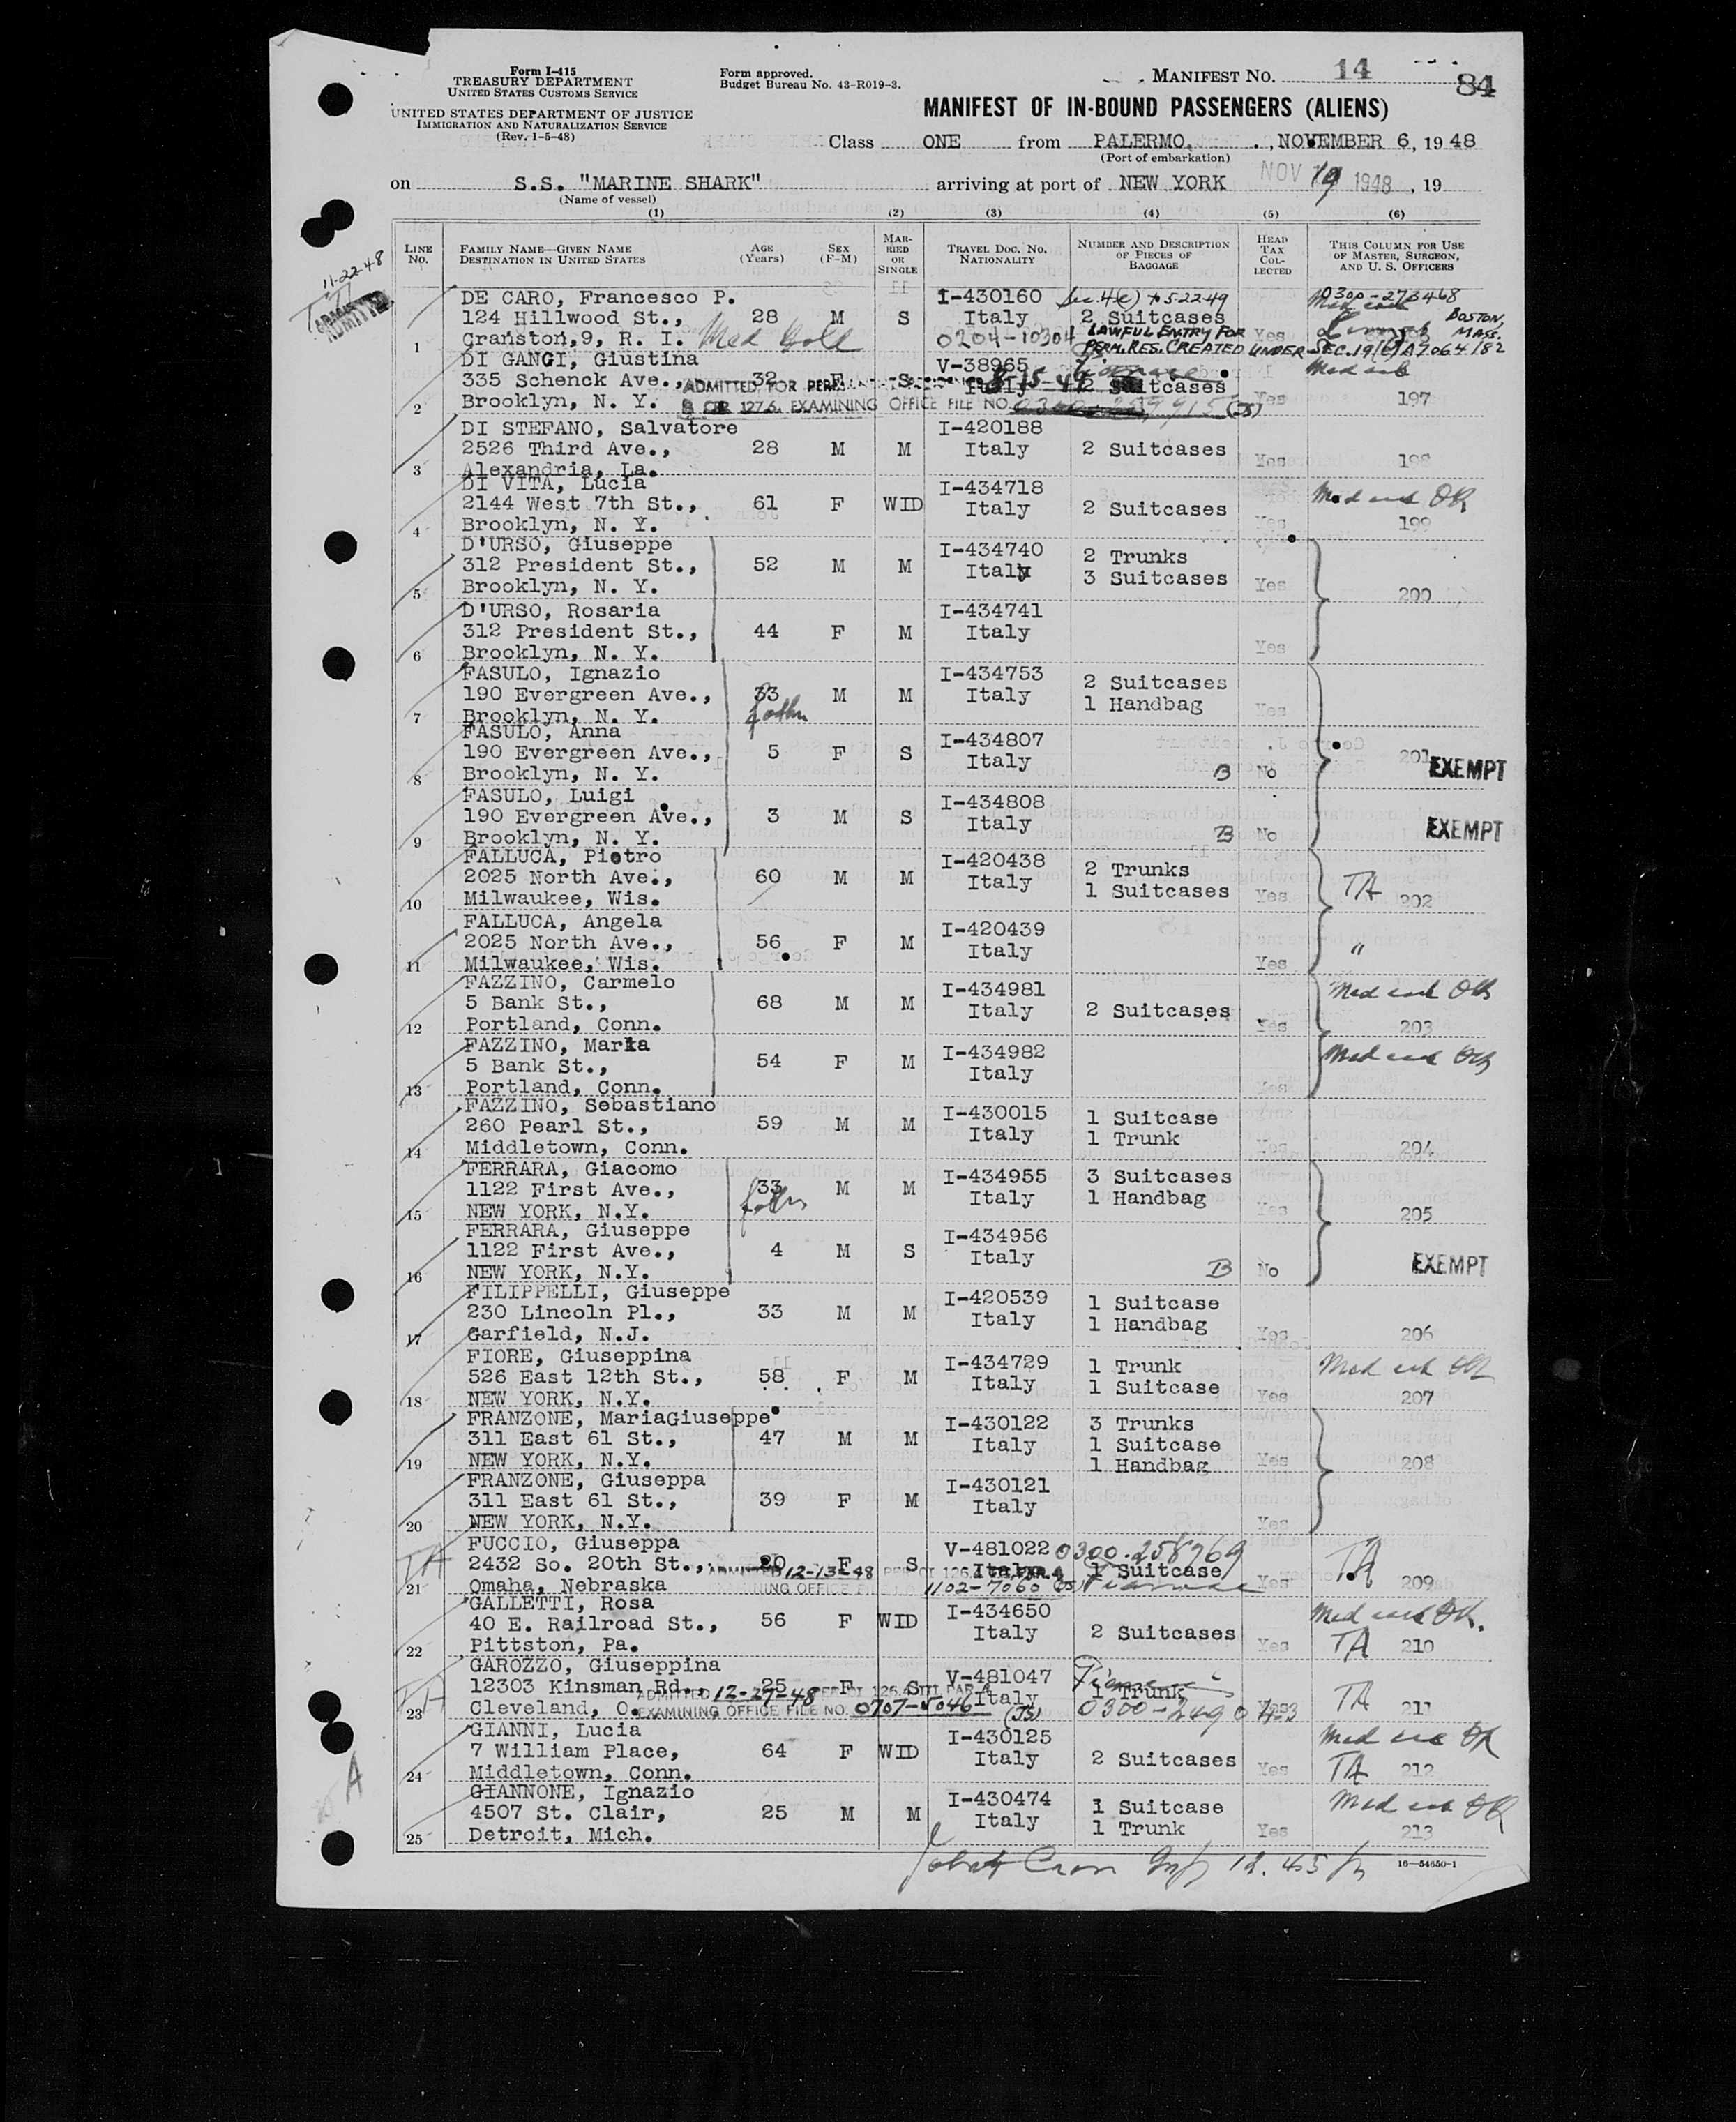 Form I-415
TREASURY DEPARTMENT
UNITED STATES CUSTOMS SERVICE
UNITED STATES DEPARTMENT OF JUSTICE
IMMIGRATION AND NATURALIZATION SERVICE
(Rev. 1-5-48)
Form approved.
Budget Bureau No. 43-R019-3.
MANIFEST NO. 14
84
MANIFEST OF IN-BOUND PASSENGERS (ALIENS)
Class ONE from PALERMO, NOVEMBER 6, 1948
(Port of embarkation)
on S.S. "MARINE SHARK" arriving at port of NEW YORK NOV 19 1948, 19
(Name of vessel)
(1) (2) (3) (4) (5) (6)
LINE NO. FAMILY NAME—GIVEN NAME DESTINATION IN UNITED STATES AGE (Years) SEX (F-M) MARRIED OR SINGLE TRAVEL DOC. NO. NATIONALITY NUMBER AND DESCRIPTION OF PIECES OF BAGGAGE HEAD TAX COLLECTED THIS COLUMN FOR USE OF MASTER, SURGEON, AND U. S. OFFICERS
11-22-48
ADMITTED
DE CARO, Francesco P. I-430160 Sec. 4(e) to 5-22-49 0300-273468
124 Hillwood St., 28 M S Italy 2 Suitcases BOSTON, MASS.
1 Cranston,9, R. I. Med Hold 0204-10304 LAWFUL ENTRY FOR Yes
PERM. RES. CREATED UNDER SEC. 19(c) A7064182
DI GANGI, Giustina V-38965
335 Schenck Ave., 32 F S Italy 2 Suitcases
ADMITTED FOR PERMANENT RESIDENCE 8-15-49
2 Brooklyn, N. Y. 8 CFR 127.6. EXAMINING OFFICE FILE NO. (JS) Yes 197
DI STEFANO, Salvatore I-420188
2526 Third Ave., 28 M M Italy 2 Suitcases
3 Alexandria, La. Yes 198
DI VITA, Lucia I-434718 Med cert OK
2144 West 7th St., 61 F WID Italy 2 Suitcases
4 Brooklyn, N. Y. Yes 199
D'URSO, Giuseppe I-434740 2 Trunks
312 President St., 52 M M Italy 3 Suitcases
5 Brooklyn, N. Y. Yes 200
D'URSO, Rosaria I-434741
312 President St., 44 F M Italy
6 Brooklyn, N. Y. Yes
FASULO, Ignazio I-434753 2 Suitcases
190 Evergreen Ave., 33 M M Italy 1 Handbag
7 Brooklyn, N. Y. father Yes
FASULO, Anna I-434807
190 Evergreen Ave., 5 F S Italy 201
8 Brooklyn, N. Y. B No EXEMPT
FASULO, Luigi I-434808
190 Evergreen Ave., 3 M S Italy
9 Brooklyn, N. Y. B No EXEMPT
FALLUCA, Pietro I-420438 2 Trunks
2025 North Ave., 60 M M Italy 1 Suitcases
10 Milwaukee, Wis. Yes TA 202
FALLUCA, Angela I-420439
2025 North Ave., 56 F M Italy "
11 Milwaukee, Wis. Yes
FAZZINO, Carmelo I-434981 Med cert OK
5 Bank St., 68 M M Italy 2 Suitcases
12 Portland, Conn. Yes 203
FAZZINO, Maria I-434982 Med cert OK
5 Bank St., 54 F M Italy
13 Portland, Conn. Yes
FAZZINO, Sebastiano I-430015 1 Suitcase
260 Pearl St., 59 M M Italy 1 Trunk
14 Middletown, Conn. Yes 204
FERRARA, Giacomo I-434955 3 Suitcases
1122 First Ave., 33 M M Italy 1 Handbag
15 NEW YORK, N.Y. father Yes 205
FERRARA, Giuseppe I-434956
1122 First Ave., 4 M S Italy
16 NEW YORK, N.Y. B No EXEMPT
FILIPPELLI, Giuseppe I-420539 1 Suitcase
230 Lincoln Pl., 33 M M Italy 1 Handbag
17 Garfield, N.J. Yes 206
FIORE, Giuseppina I-434729 1 Trunk Med cert OK
526 East 12th St., 58 F M Italy 1 Suitcase
18 NEW YORK, N.Y. Yes 207
FRANZONE, MariaGiuseppe I-430122 3 Trunks
311 East 61 St., 47 M M Italy 1 Suitcase
19 NEW YORK, N.Y. 1 Handbag Yes 208
FRANZONE, Giuseppa I-430121
311 East 61 St., 39 F M Italy
20 NEW YORK, N.Y. Yes
FUCCIO, Giuseppa V-481022 0300-258769
TA 2432 So. 20th St., 20 F S Italy 1 Suitcase TA
ADMITTED 12-13-48
21 Omaha, Nebraska EXAMINING OFFICE 1102-7060 (JS) Fiancee Yes 209
GALLETTI, Rosa I-434650 Med cert OK.
40 E. Railroad St., 56 F WID Italy 2 Suitcases
22 Pittston, Pa. Yes TA 210
GAROZZO, Giuseppina V-481047 Fiancee
TA 12303 Kinsman Rd., 25 F S Italy 1 Trunk TA
ADMITTED 12-27-48
23 Cleveland, O. EXAMINING OFFICE FILE NO. 0707-5046 (JS) Yes 211
GIANNI, Lucia I-430125 Med cert OK
7 William Place, 64 F WID Italy 2 Suitcases
24 Middletown, Conn. Yes TA 212
GIANNONE, Ignazio I-430474 1 Suitcase Med cert OK
4507 St. Clair, 25 M M Italy 1 Trunk
25 Detroit, Mich. Yes 213
16—54650-1